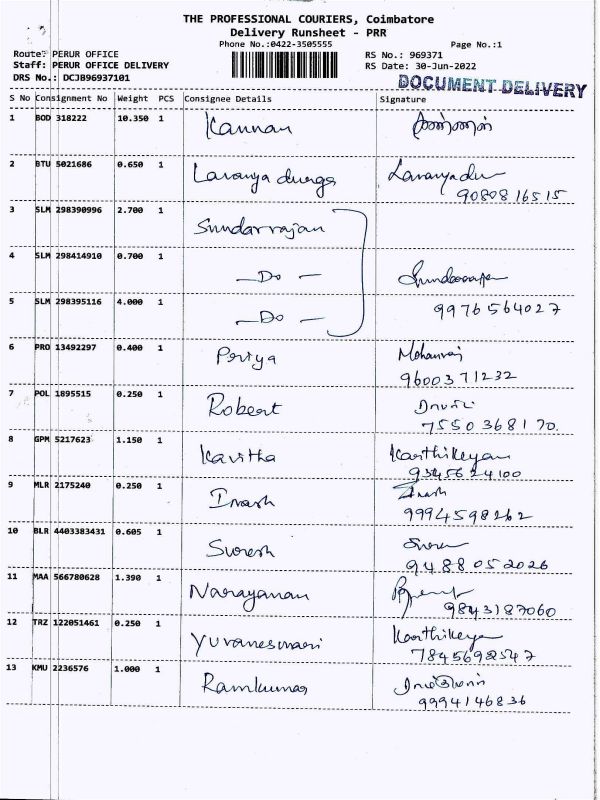 THE PROFESSIONAL COURIERS, Coimbatore
Delivery Runsheet - PRR
Phone No.:0422-3505555 Page No.:1
Route: PERUR OFFICE RS No.: 969371
Staff: PERUR OFFICE DELIVERY RS Date: 30-Jun-2022
DRS No.: DCJB96937101 DOCUMENT DELIVERY
S No Consignment No Weight PCS Consignee Details Signature
1 BOD 318222 10.350 1 Kannan
2 BTU 5021686 0.650 1 Lavanya durga Lavanyadu
9080816515
3 SLM 298390996 2.700 1 Sundarrajan
4 SLM 298414910 0.700 1 — Do —
5 SLM 298395116 4.000 1 — Do — 9976564027
6 PRO 13492297 0.400 1 Periya Mohanraj
9600371232
7 POL 1895515 0.250 1 Robert
7550368170.
8 GPM 5217623 1.150 1 Kavitha Karthikeyan
9345624100
9 MLR 2175240 0.250 1 Inash Inash
9994598262
10 BLR 4403383431 0.605 1 Suresh
9488052026
11 MAA 566780628 1.390 1 Narayanan
9843187060
12 TRZ 122051461 0.250 1 Yuvaneswari Karthikeya
7845692547
13 KMU 2236576 1.000 1 Ramkumar
9994146836